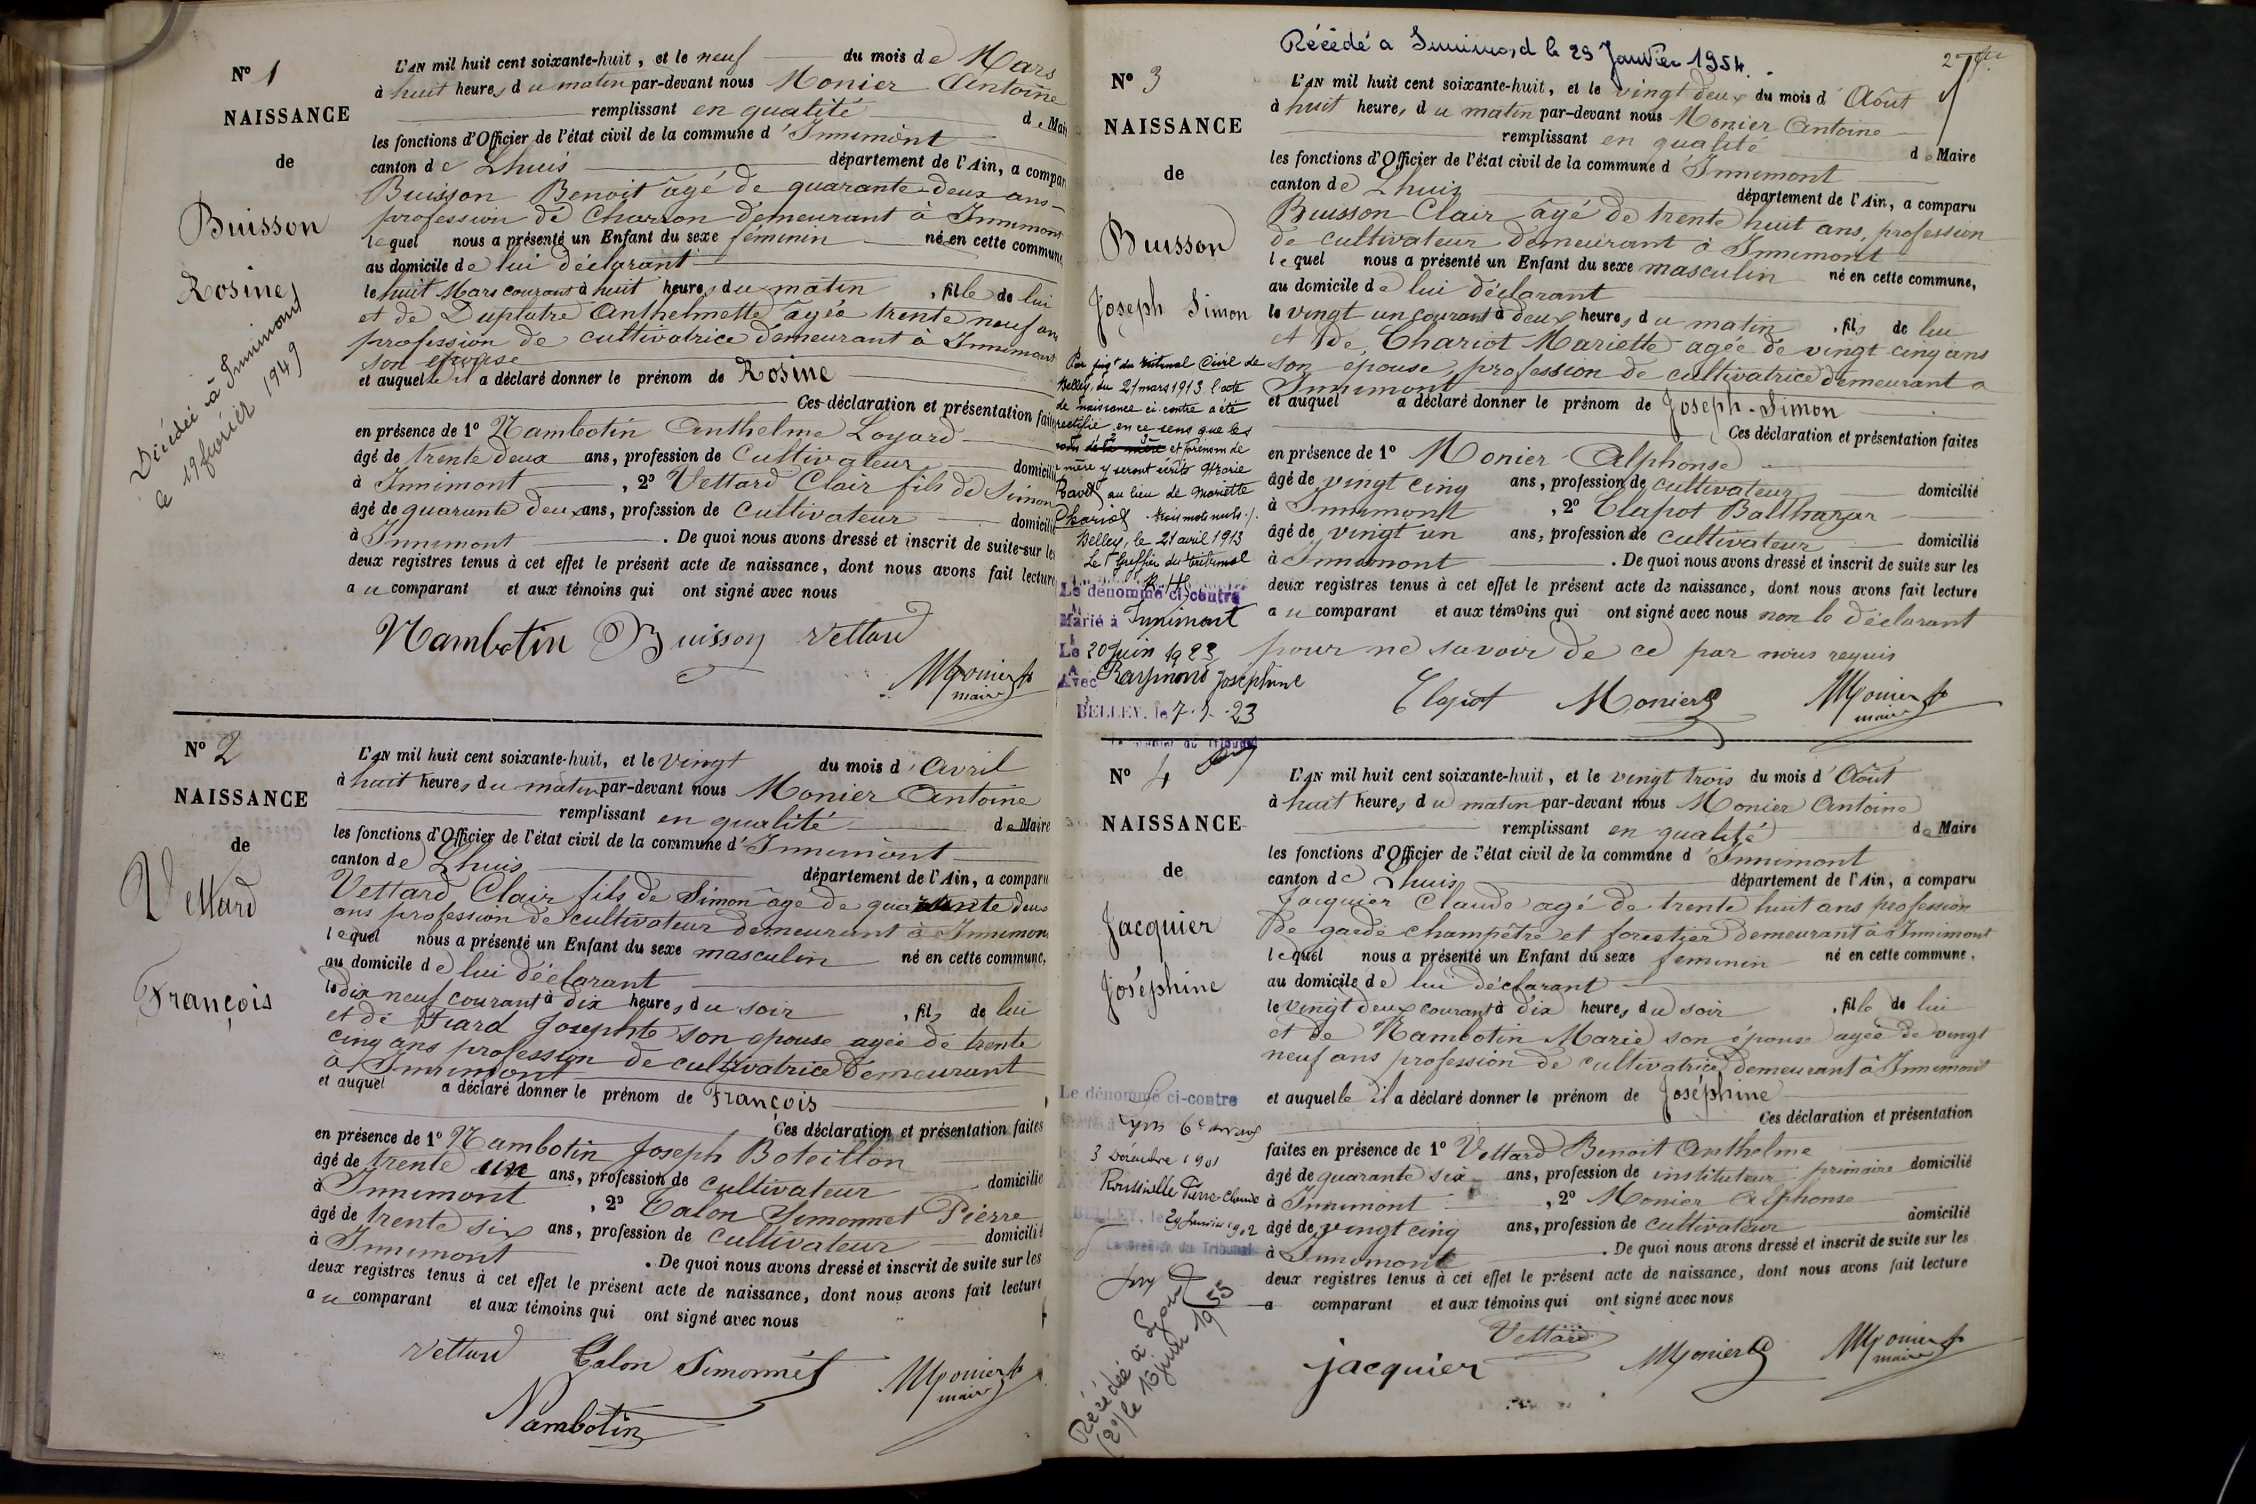 N° 1
NAISSANCE
de
Buisson
Rosine
Décédée à Innimont
le 19 février 1949
L'AN mil huit cent soixante-huit, et le neuf du mois de Mars
à huit heures du matin par-devant nous Monier Antoine
remplissant en qualité de Mai
les fonctions d'Officier de l'état civil de la commune d'Innimont
canton de Lhuis département de l'Ain, a compar
Buisson Benoit âgé de quarante-deux ans
profession de Charron demeurant à Innimont
lequel nous a présenté un Enfant du sexe féminin né en cette commune
au domicile de lui déclarant
le huit Mars courant à huit heures du matin, fille de lui
et de Duplatre Anthelmette âgée trente neuf ans
profession de cultivatrice demeurant à Innimont
son épouse
et auquelle il a déclaré donner le prénom de Rosine
Ces déclaration et présentation faites
en présence de 1° Nambotin Anthelme Loyard
âgé de trente deux ans, profession de Cultivateur domicilié
à Innimont, 2° Vettard Clair fils de Simon
âgé de quarante deux ans, profession de Cultivateur domicilié
à Innimont. De quoi nous avons dressé et inscrit de suite sur les
deux registres tenus à cet effet le présent acte de naissance, dont nous avons fait lecture
au comparant et aux témoins qui ont signé avec nous
Nambotin Buisson Vettard
Monier
maire
N° 2
NAISSANCE
de
Vettard
François
L'AN mil huit cent soixante-huit, et le vingt du mois d'Avril
à huit heures du matin par-devant nous Monier Antoine
remplissant en qualité de Maire
les fonctions d'Officier de l'état civil de la commune d'Innimont
canton de Lhuis département de l'Ain, a comparu
Vettard Clair fils de Simon âgé de quarante deux
ans profession de cultivateur demeurant à Innimont
lequel nous a présenté un Enfant du sexe masculin né en cette commune,
au domicile de lui déclarant
le dix neuf courant à dix heures du soir, fils de lui
et de Fiard Josephte son épouse agée de trente
cinq ans profession de cultivatrice demeurant
à Innimont
et auquel a déclaré donner le prénom de François
Ces déclaration et présentation faites
en présence de 1° Nambotin Joseph Boteillon
âgé de trente un ans, profession de cultivateur domicilié
à Innimont, 2° Calon Simonnet Pierre
âgé de trente six ans, profession de cultivateur domicilié
à Innimont. De quoi nous avons dressé et inscrit de suite sur les
deux registres tenus à cet effet le présent acte de naissance, dont nous avons fait lecture
au comparant et aux témoins qui ont signé avec nous
Vettard Calon Simonnet Monier
maire
Nambotin
Décédé à Innimond le 29 Janvier 1954.
N° 3
NAISSANCE
de
Buisson
Joseph Simon
Par jugt du tribunal Civil de
Belley, du 21 mars 1913 l'acte
de naissance ci-contre a été
rectifié en ce sens que les
nom et prénom de
mère y seront écrits Marie
Ravet au lieu de Mariette
Chariot. trois mots nuls.
Belley, le 21 avril 1913
Le Greffier du tribunal
Le dénommé ci-contre
Marié à Innimont
Le 20 Juin 1923
Avec Raymond Joséphine
BELLEY, le 7.7.23
L'AN mil huit cent soixante-huit, et le vingt deux du mois d'Août
à huit heures du matin par-devant nous Monier Antoine
remplissant en qualité de Maire
les fonctions d'Officier de l'état civil de la commune d'Innimont
canton de Lhuis département de l'Ain, a comparu
Buisson Clair âgé de trente huit ans, profession
de cultivateur demeurant à Innimont
lequel nous a présenté un Enfant du sexe masculin né en cette commune,
au domicile de lui déclarant
le vingt un courant à deux heures du matin, fils de lui
et de Chariot Mariette agée de vingt cinq ans
son épouse, profession de cultivatrice demeurant à
Innimont
et auquel a déclaré donner le prénom de Joseph-Simon
Ces déclaration et présentation faites
en présence de 1° Monier Alphonse
âgé de vingt cinq ans, profession de cultivateur domicilié
à Innimont, 2° Clapot Balthazar
âgé de vingt un ans, profession de cultivateur domicilié
à Innimont. De quoi nous avons dressé et inscrit de suite sur les
deux registres tenus à cet effet le présent acte de naissance, dont nous avons fait lecture
au comparant et aux témoins qui ont signé avec nous non le déclarant
pour ne savoir de ce par nous requis
Clapot Monier Monier
maire
N° 4
NAISSANCE
de
Jacquier
Joséphine
Le dénommé ci-contre
Lyon 6e arr
3 Décembre 1901
Pierre Claude
BELLEY, le 29 Janvier 1902
Le Greffier du Tribunal
Décédée à Lyon
(2e) le 16 juin 1955
L'AN mil huit cent soixante-huit, et le vingt trois du mois d'Août
à huit heures du matin par-devant nous Monier Antoine
remplissant en qualité de Maire
les fonctions d'Officier de l'état civil de la commune d'Innimont
canton de Lhuis département de l'Ain, a comparu
Jacquier Claude agé de trente huit ans profession
de garde champêtre et forestier demeurant à Innimont
lequel nous a présenté un Enfant du sexe féminin né en cette commune,
au domicile de lui déclarant
le vingt deux courant à dix heures du soir, fille de lui
et de Nambotin Marie son épouse agée de vingt
neuf ans profession de cultivatrice demeurant à Innimont
et auquelle il a déclaré donner le prénom de Joséphine
Ces déclaration et présentation
faites en présence de 1° Vettard Benoit Anthelme
âgé de quarante six ans, profession de instituteur primaire domicilié
à Innimont, 2° Monier Alphonse
âgé de vingt cinq ans, profession de cultivateur domicilié
à Innimont. De quoi nous avons dressé et inscrit de suite sur les
deux registres tenus à cet effet le présent acte de naissance, dont nous avons fait lecture
a comparant et aux témoins qui ont signé avec nous
Vettard
jacquier Monier Monier
maire